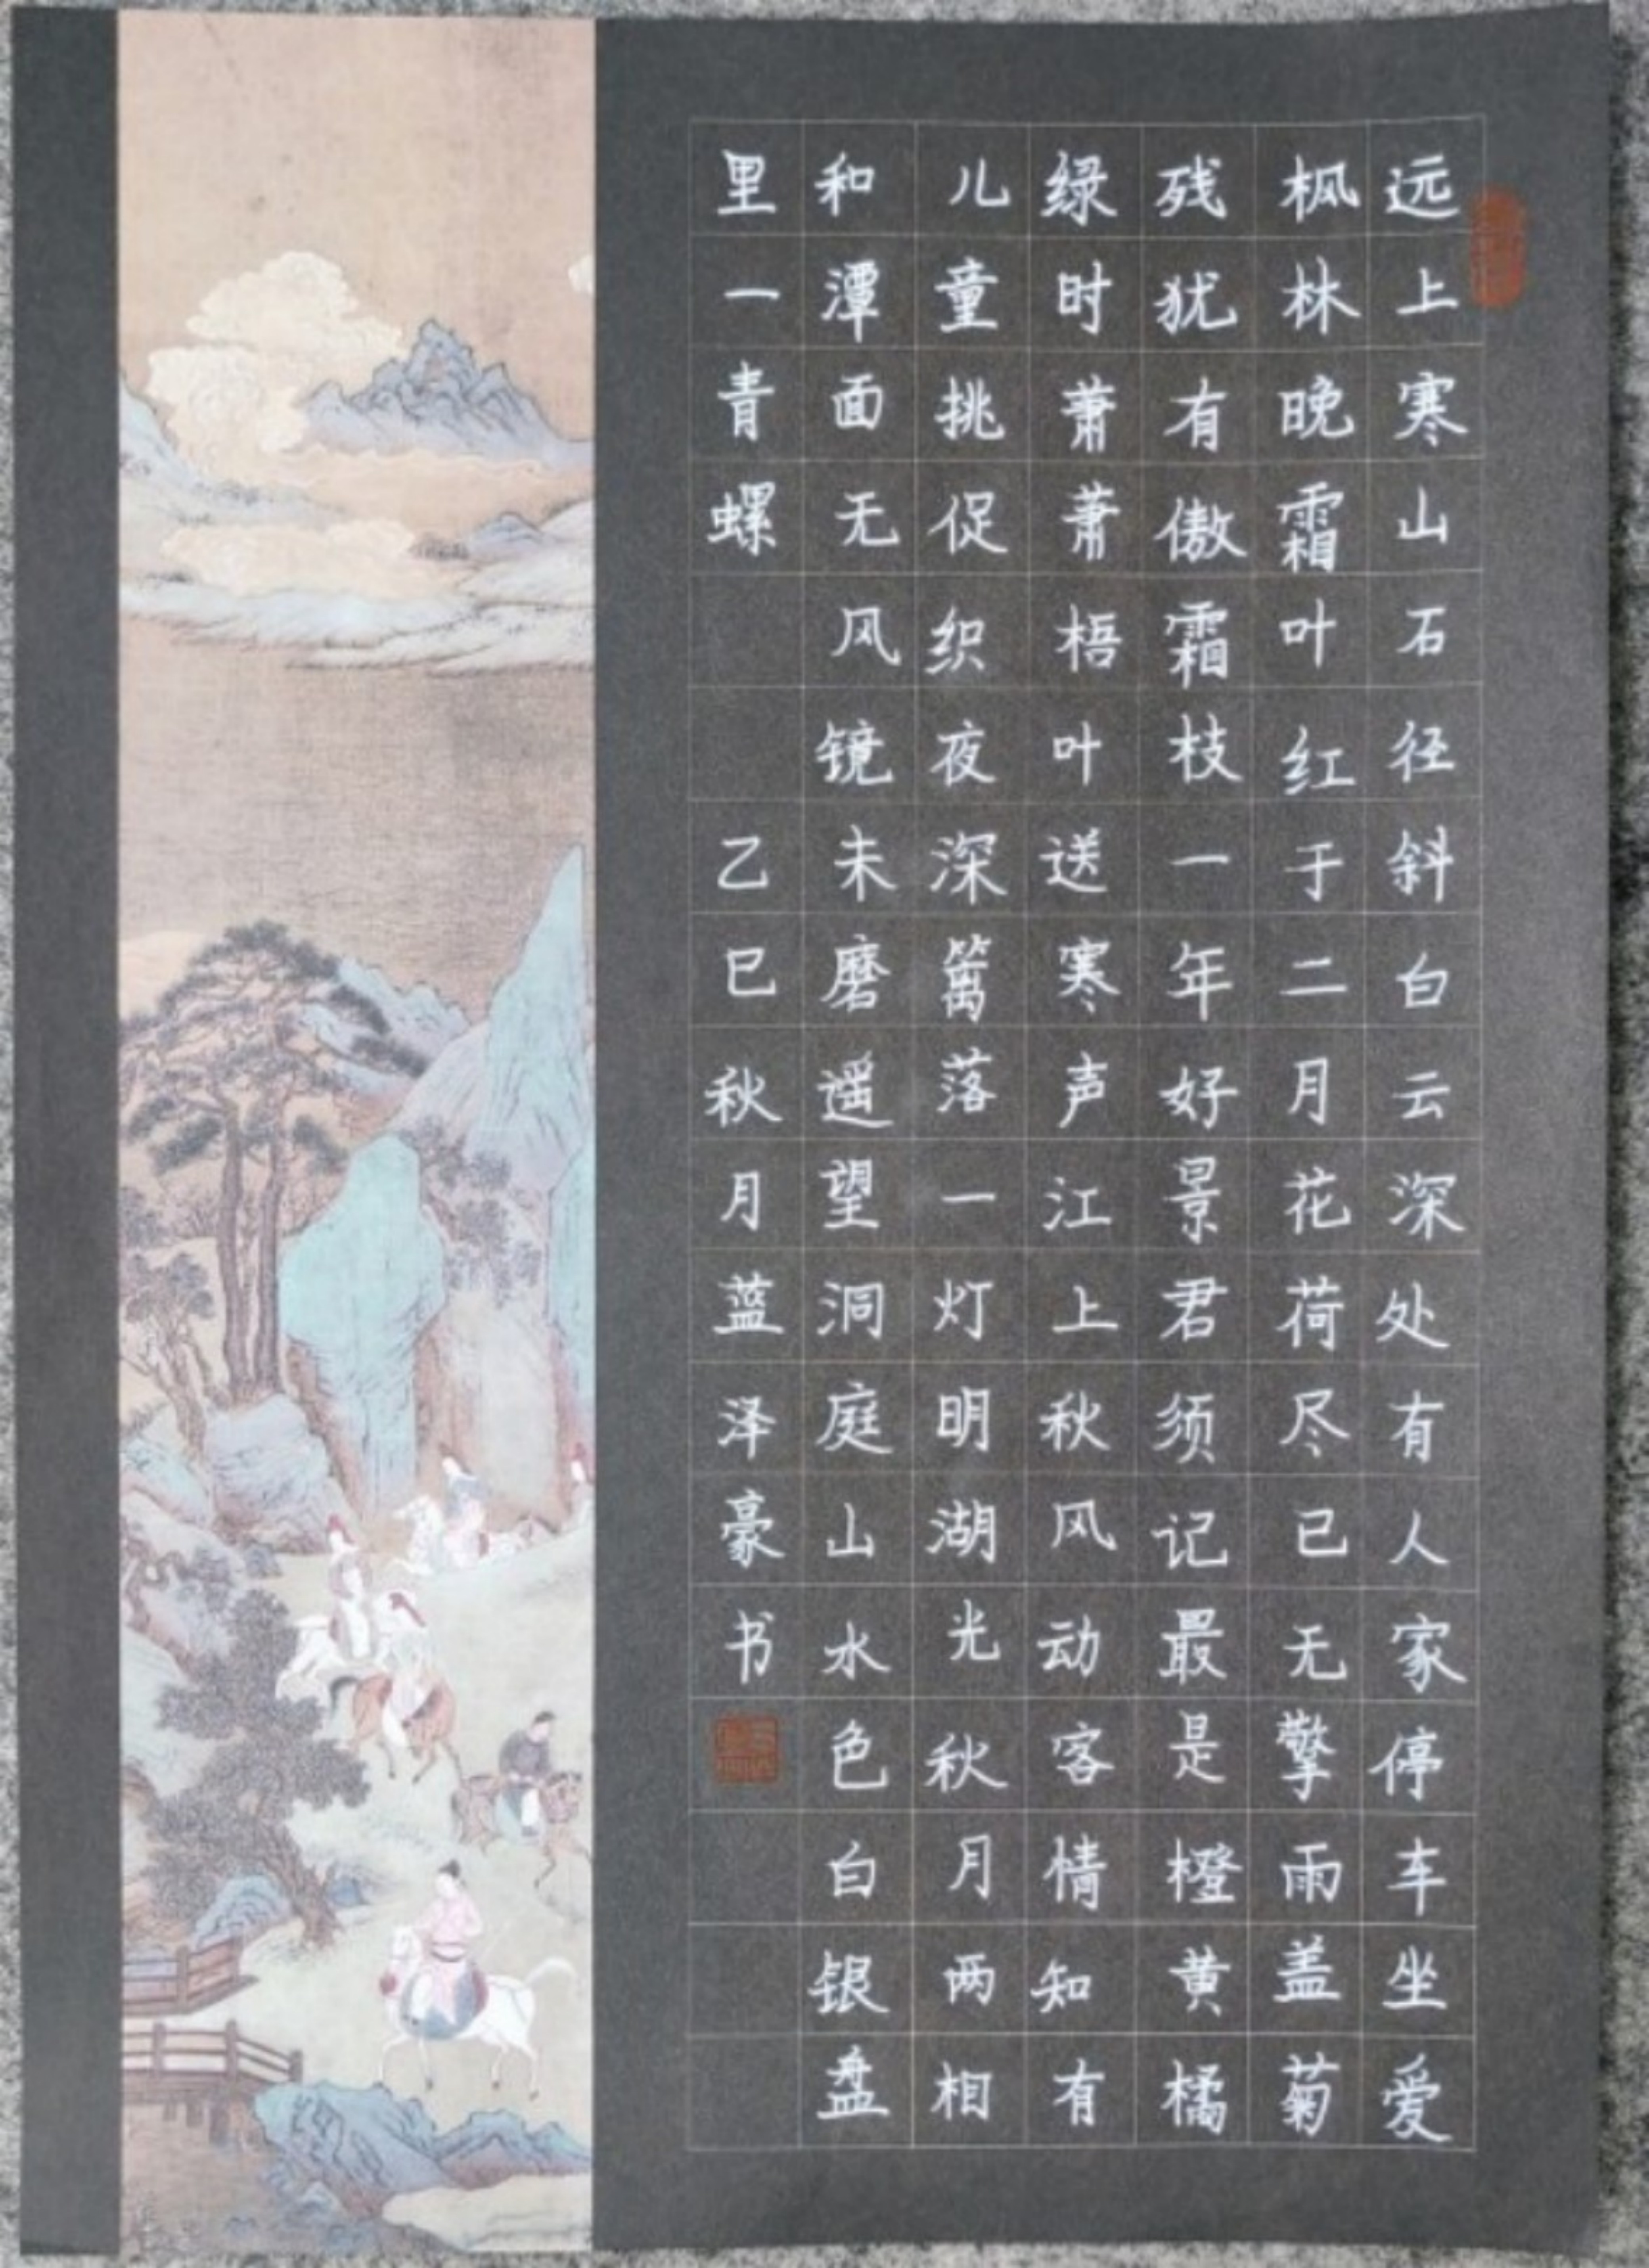 远上寒山石径斜白云深处有人家停车坐爱
枫林晚霜叶红于二月花荷尽已无擎雨盖菊
残犹有傲霜枝一年好景君须记最是橙黄橘
绿时萧萧梧叶送寒声江上秋风动客情知有
儿童挑促织夜深篱落一灯明湖光秋月两相
和潭面无风镜未磨遥望洞庭山水色白银盘
里一青螺 乙巳秋月蓝泽豪书